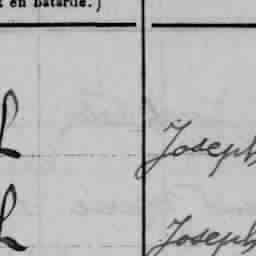 en batarde.)
L Joseph
L Joseph